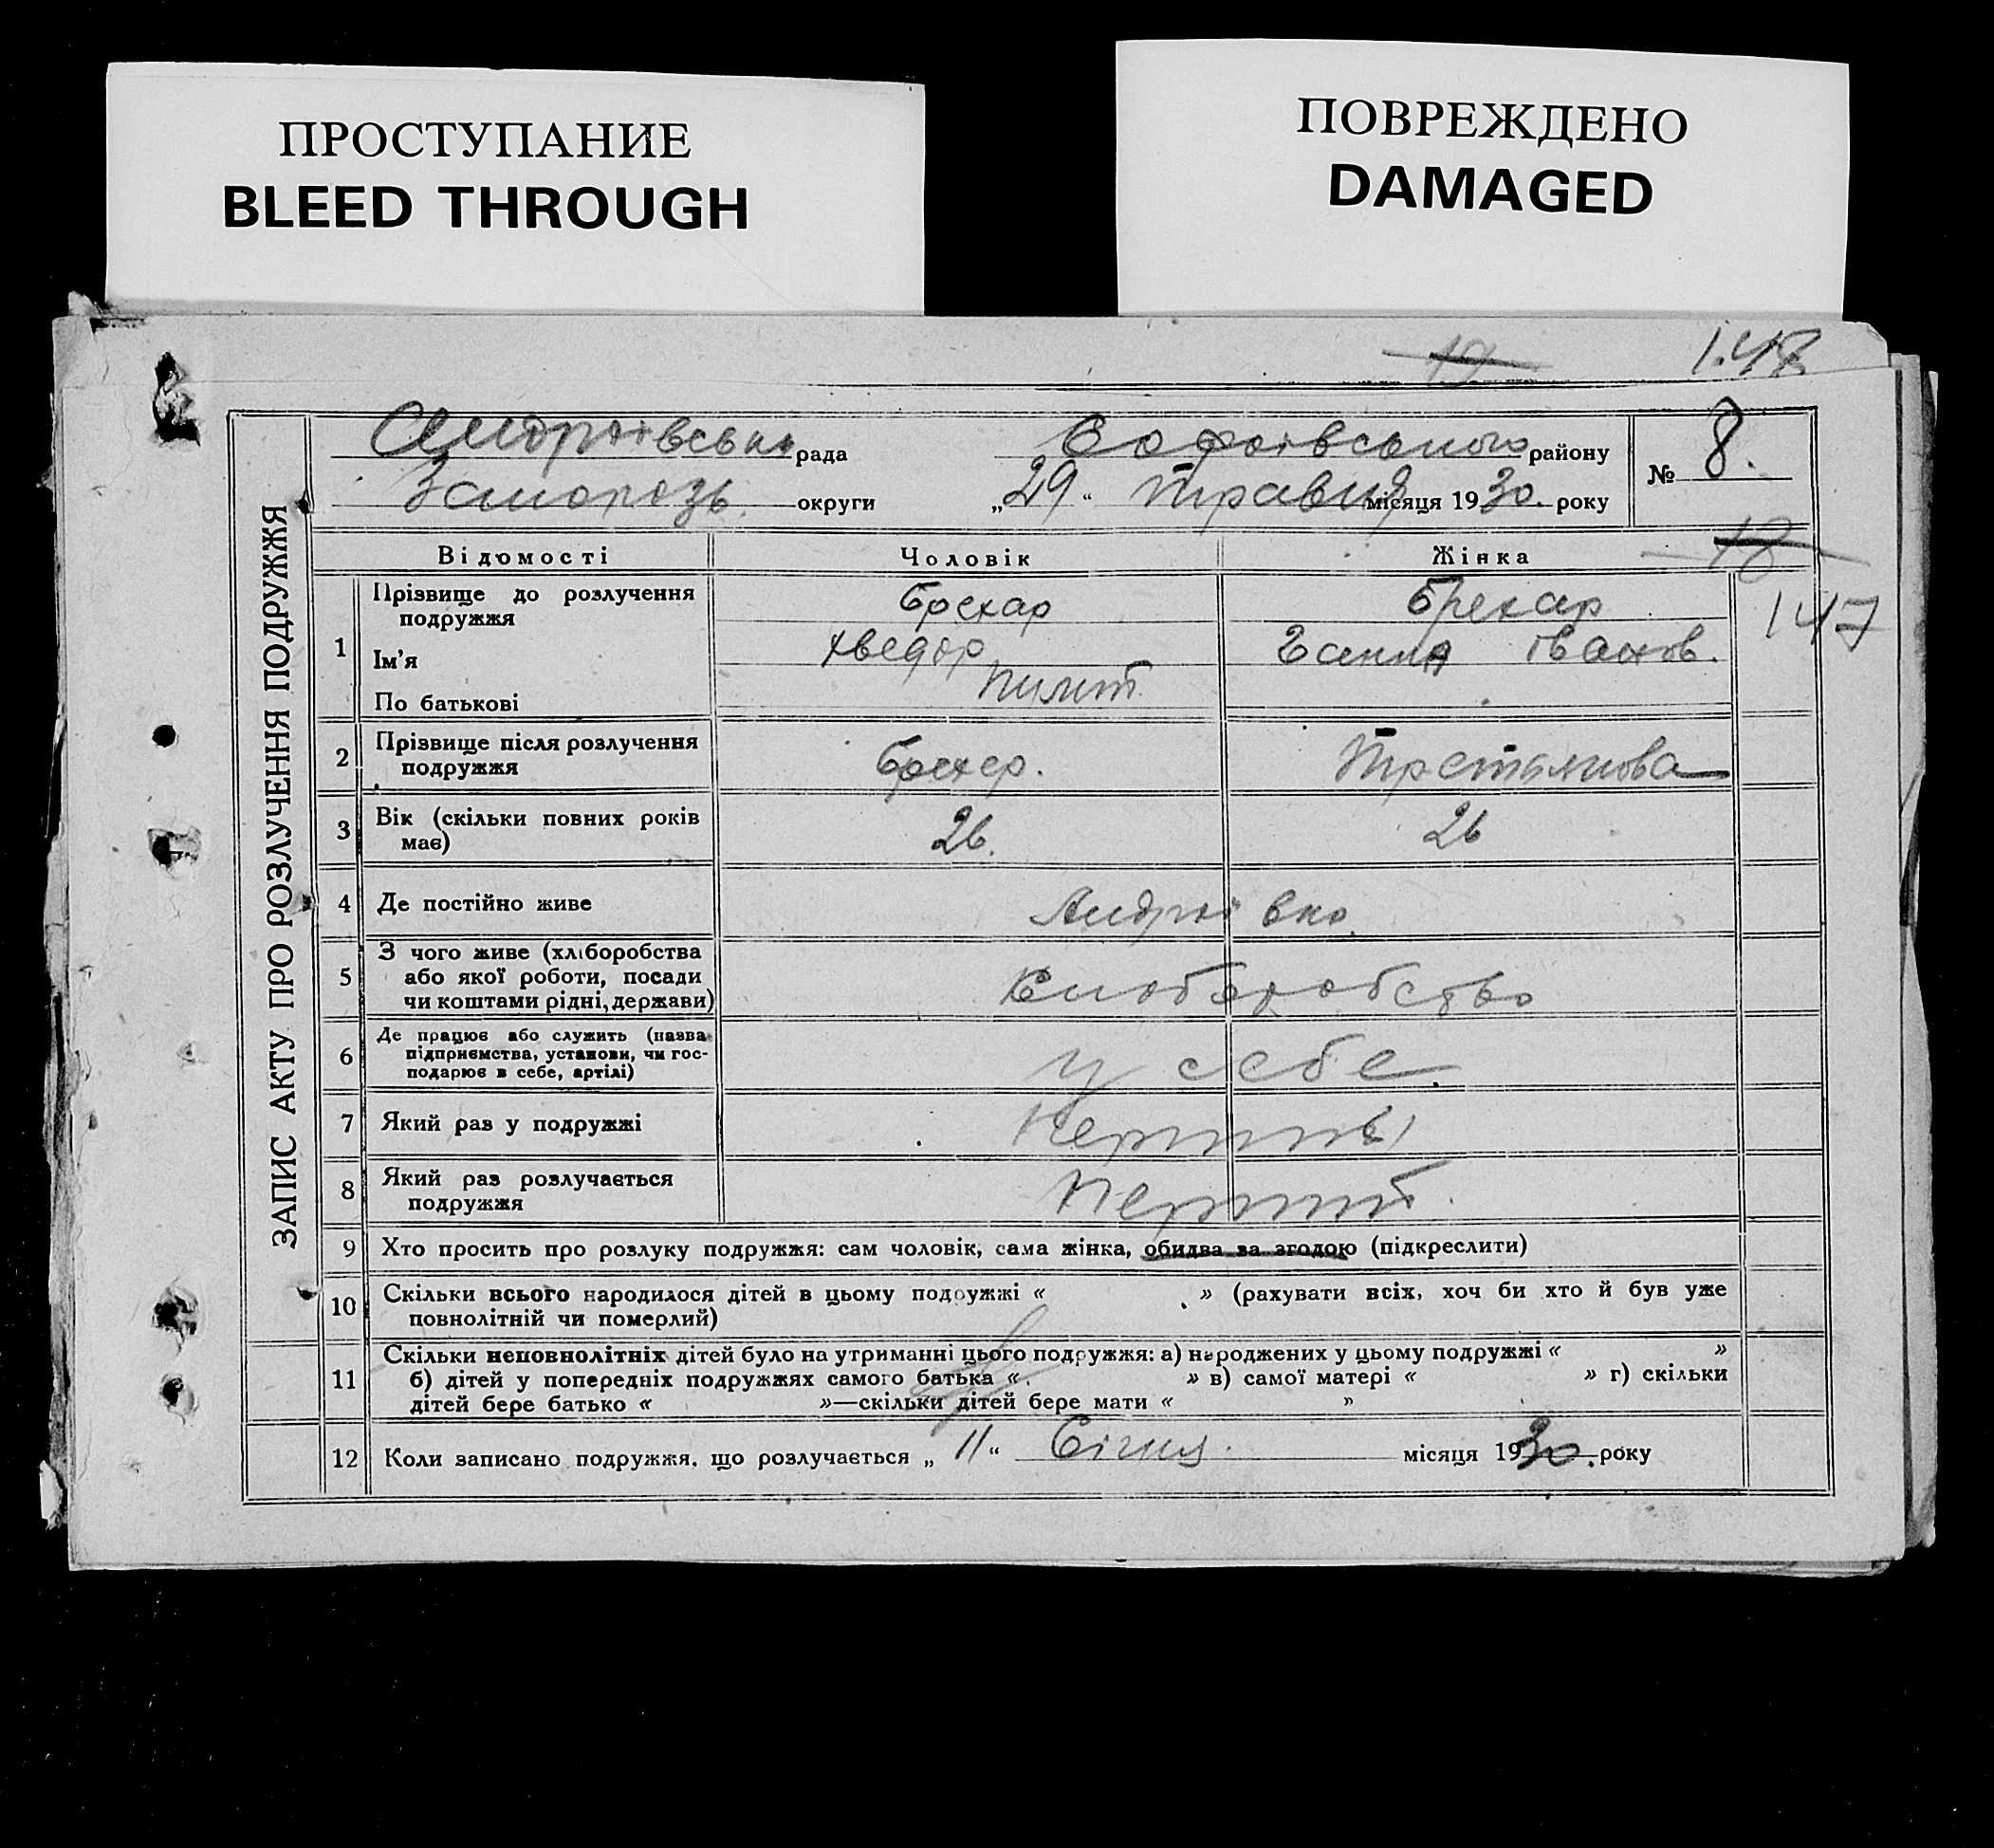 ПРОСТУПАНИЕ
BLEED THROUGH
ПОВРЕЖДЕНО
DAMAGED
19
147
ЗАПИС АКТУ ПРО РОЗЛУЧЕННЯ ПОДРУЖЖЯ
Андріївська рада Софіївського району
№ 8.
Запорозь. округи „29“ травня місяця 1930. року
18
Відомості Чоловік Жінка
147
1 Прізвище до розлучення подружжя Брехар Брехар
Ім'я Хведор Ганна Іванов.
По батькові Пилип
2 Прізвище після розлучення подружжя Брехер. Третьякова
3 Вік (скільки повних років має) 26. 26
4 Де постійно живе Андріівка
5 З чого живе (хліборобства
або якої роботи, посади
чи коштами рідні, держави)
6 Де працює або служить (назва
підприємства, установи, чи гос-
подарює в себе, артілі) у себе.
7 Який раз у подружжі Перший
8 Який раз розлучається подружжя Перший.
9 Хто просить про розлуку подружжя: сам чоловік, сама жінка, обидва за згодою (підкреслити)
10 Скільки всього народилося дітей в цьому подружжі « » (рахувати всіх, хоч би хто й був уже
повнолітній чи померлий)
11 Скільки неповнолітніх дітей було на утриманні цього подружжя: а) народжених у цьому подружжі « »
б) дітей у попередніх подружжях самого батька « » в) самої матері « » г) скільки
дітей бере батько « »—скільки дітей бере мати « »
12 Коли записано подружжя, що розлучається „ 11 “ Січня. місяця 1930. року